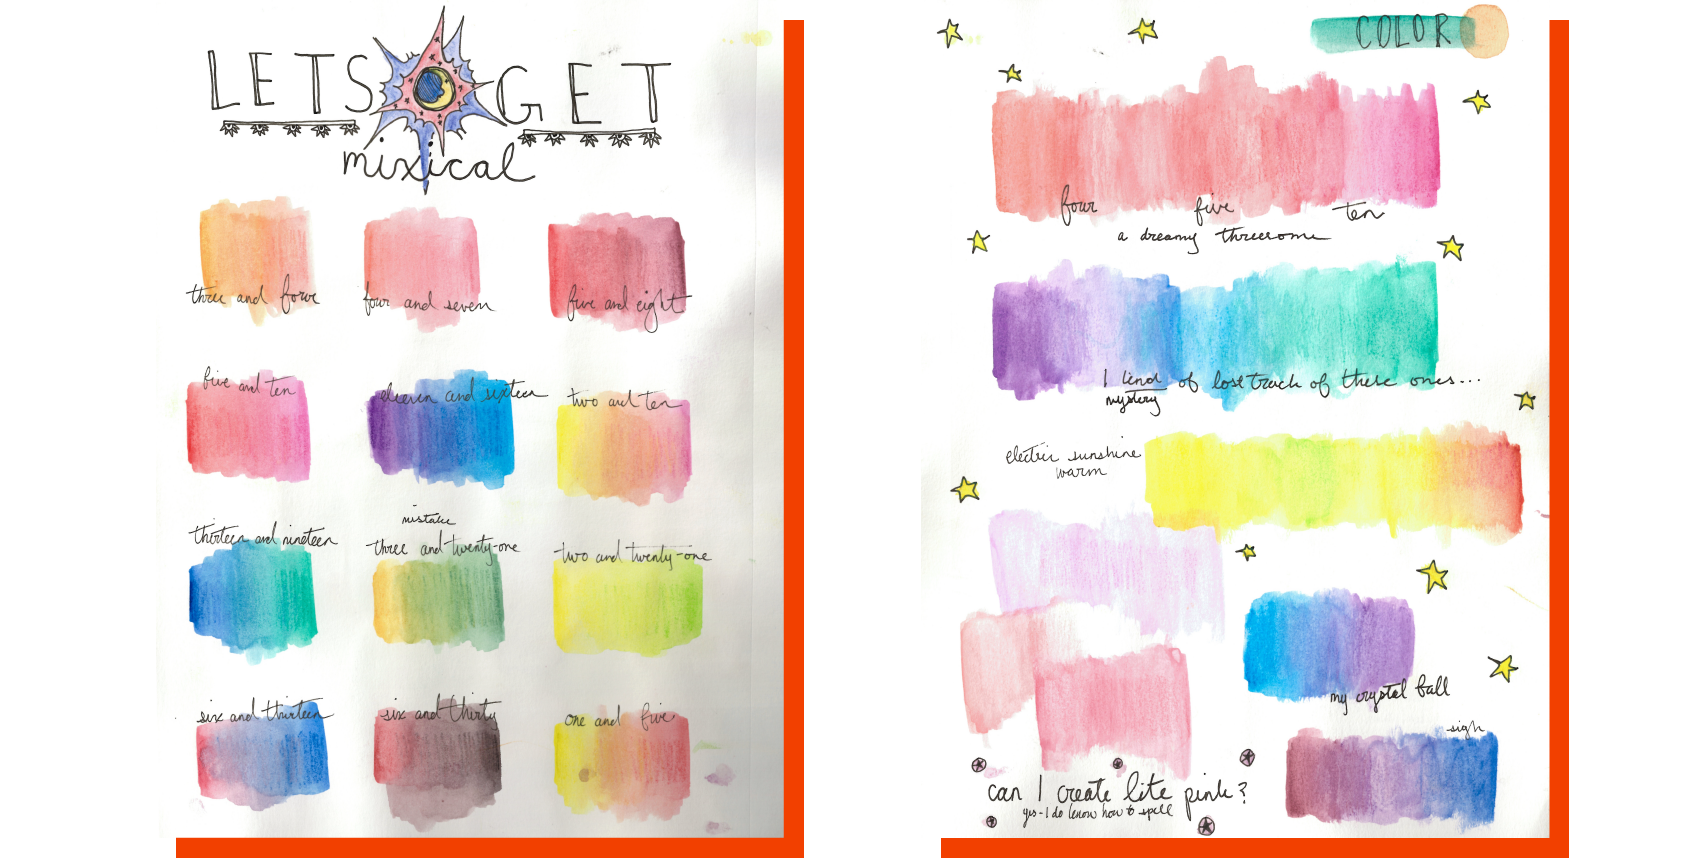 LETS GET
mixical
three and four
four and seven
five and eight
five and ten
eleven and sixteen
two and ten
thirteen and nineteen
mistake
three and twenty-one
two and twenty-one
six and thirteen
six and thirty
one and five
COLOR
four five ten
a dreamy threesome
I kind of lost track of these ones...
mystery
electric sunshine
warm
my crystal ball
sigh
can I create lite pink?
yes-I do know how to spell